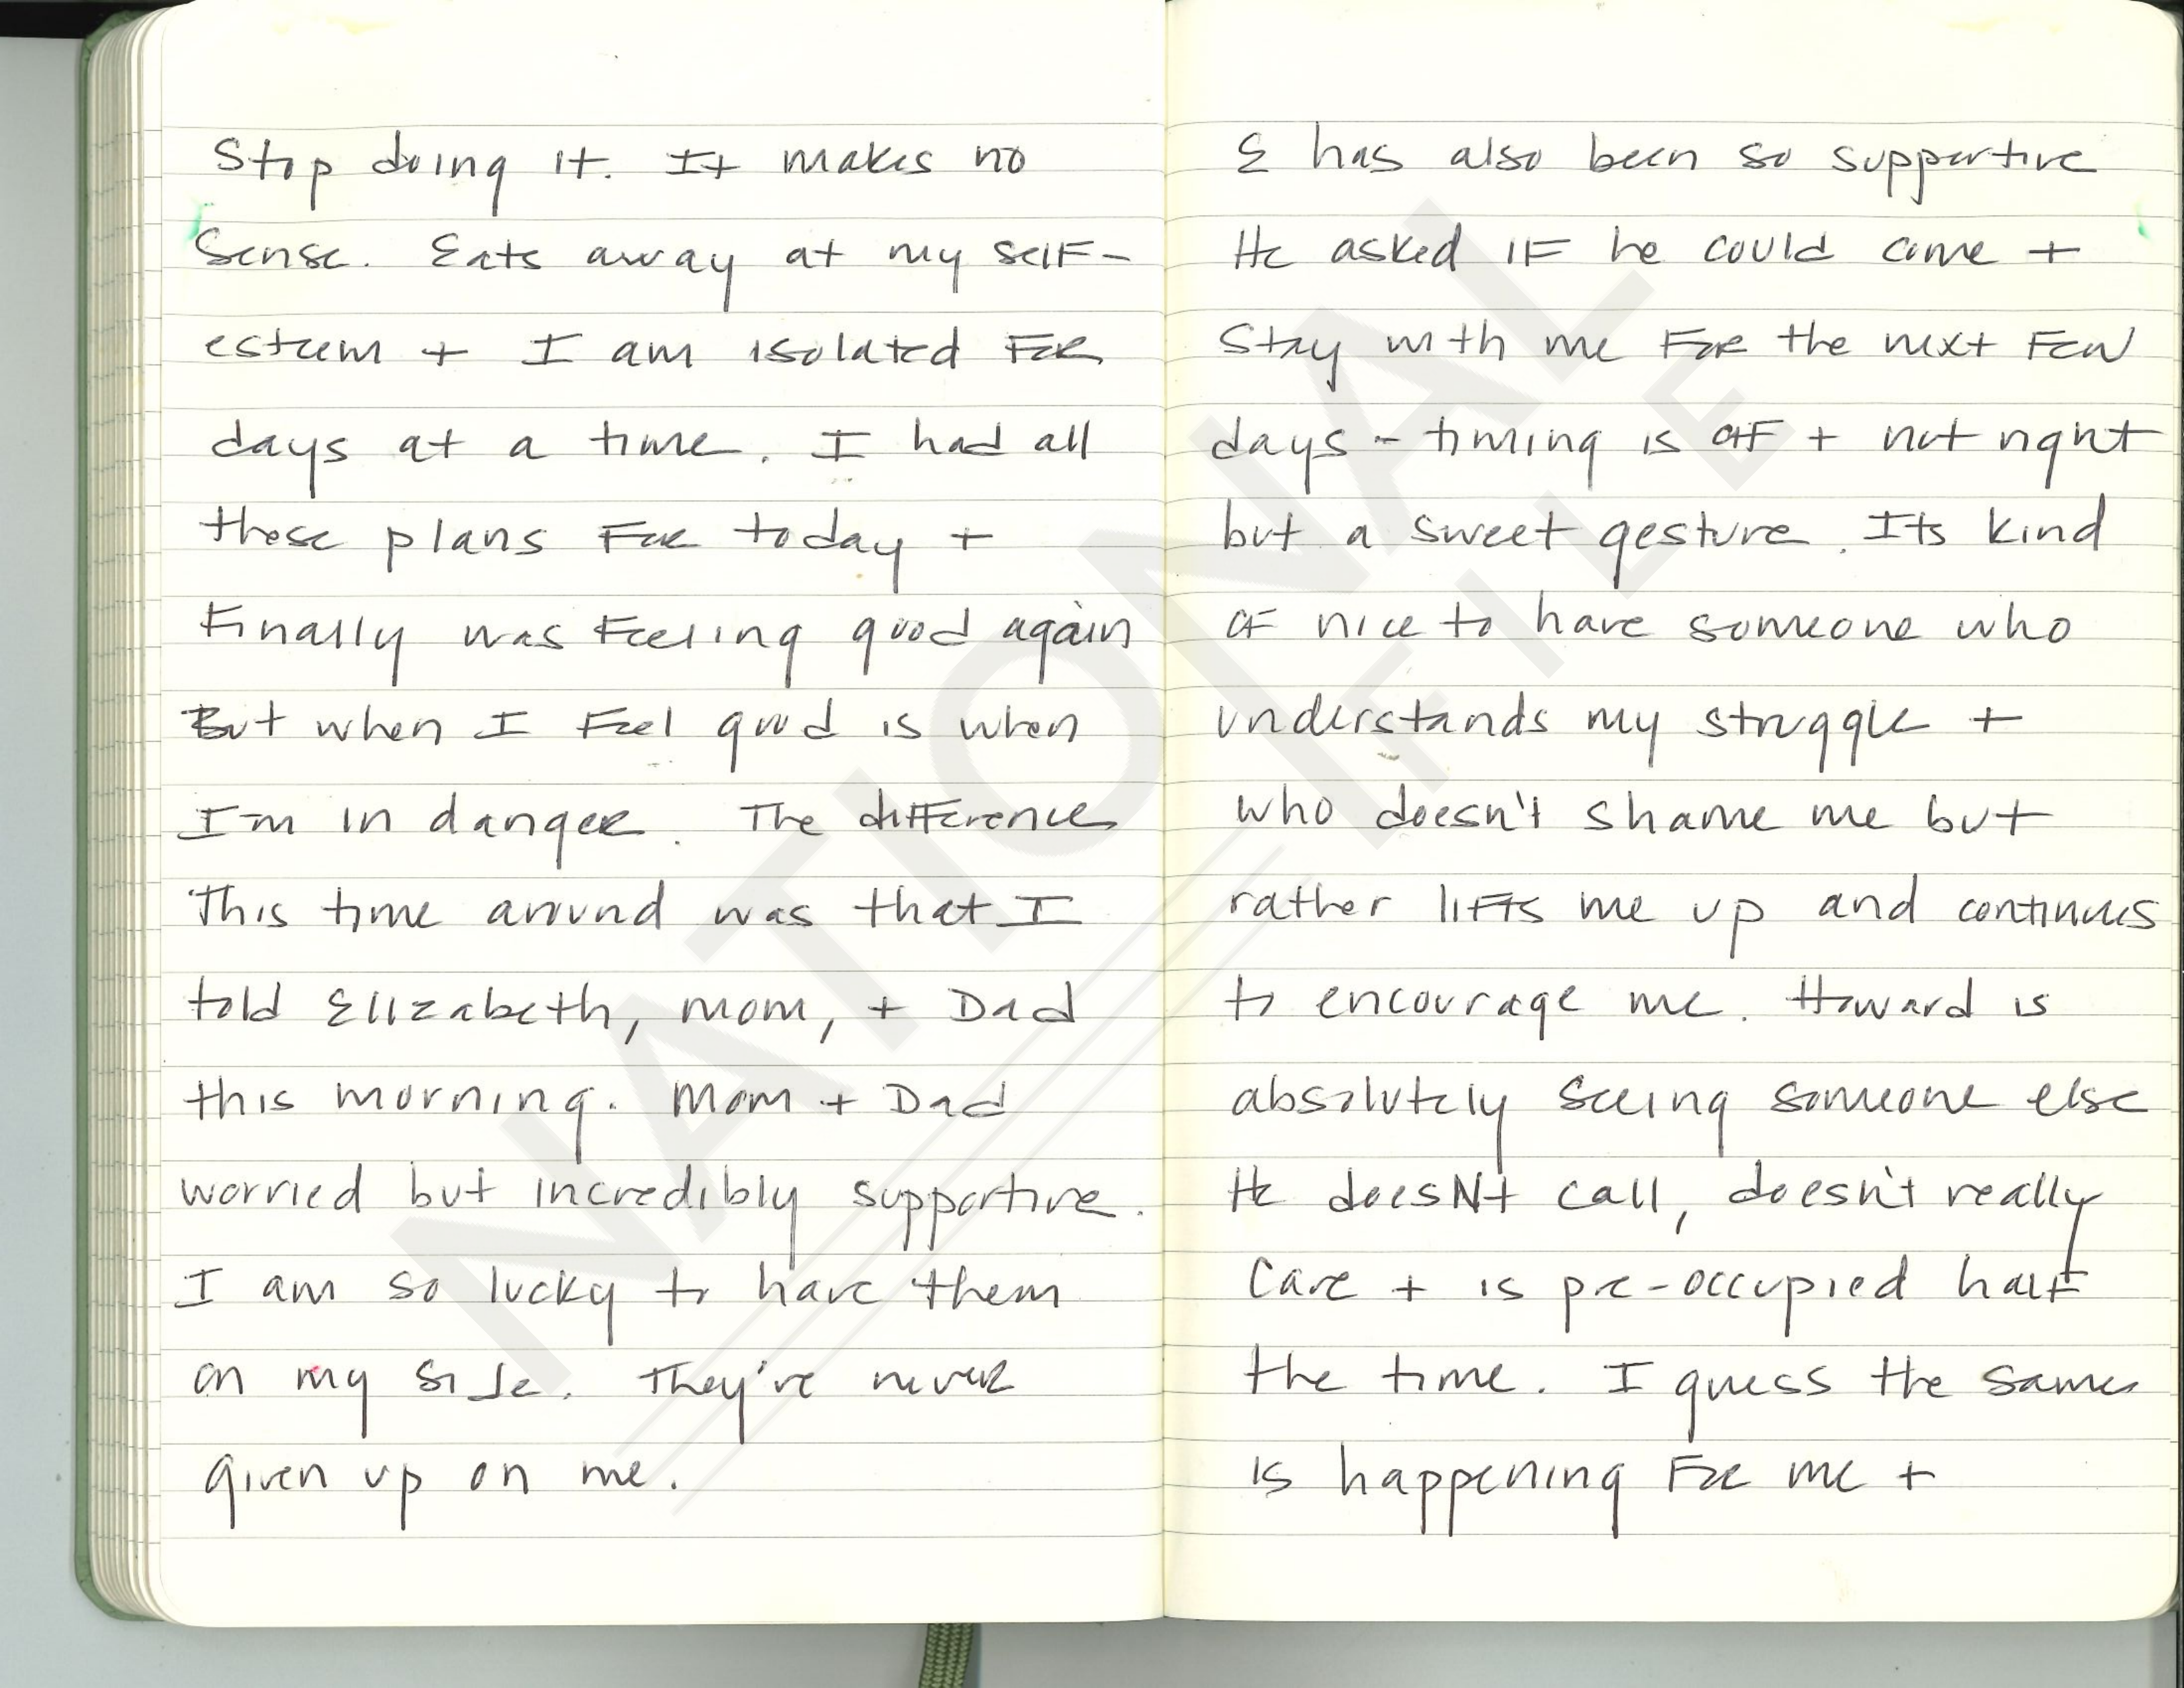 Stop doing it. It makes no
Sense. Eats away at my self-
esteem + I am isolated For
days at a time. I had all
these plans For today +
Finally was Feeling good again
But when I Feel good is when
I'm in danger. The difference
This time around was that I
told Elizabeth, mom, + Dad
this morning. Mom + Dad
worried but incredibly supportive.
I am so lucky to have them
on my side. They're never
given up on me.
E has also been so supportive
He asked IF he could come +
Stay with me For the next Few
days - timing is off + not right
but a sweet gesture. Its kind
of nice to have someone who
understands my struggle +
who doesn't shame me but
rather lifts me up and continues
to encourage me. Howard is
absolutely seeing someone else
He doesNt call, doesn't really
Care + is pre-occupied half
the time. I guess the same
is happening For me +
NATIONAL
FILE